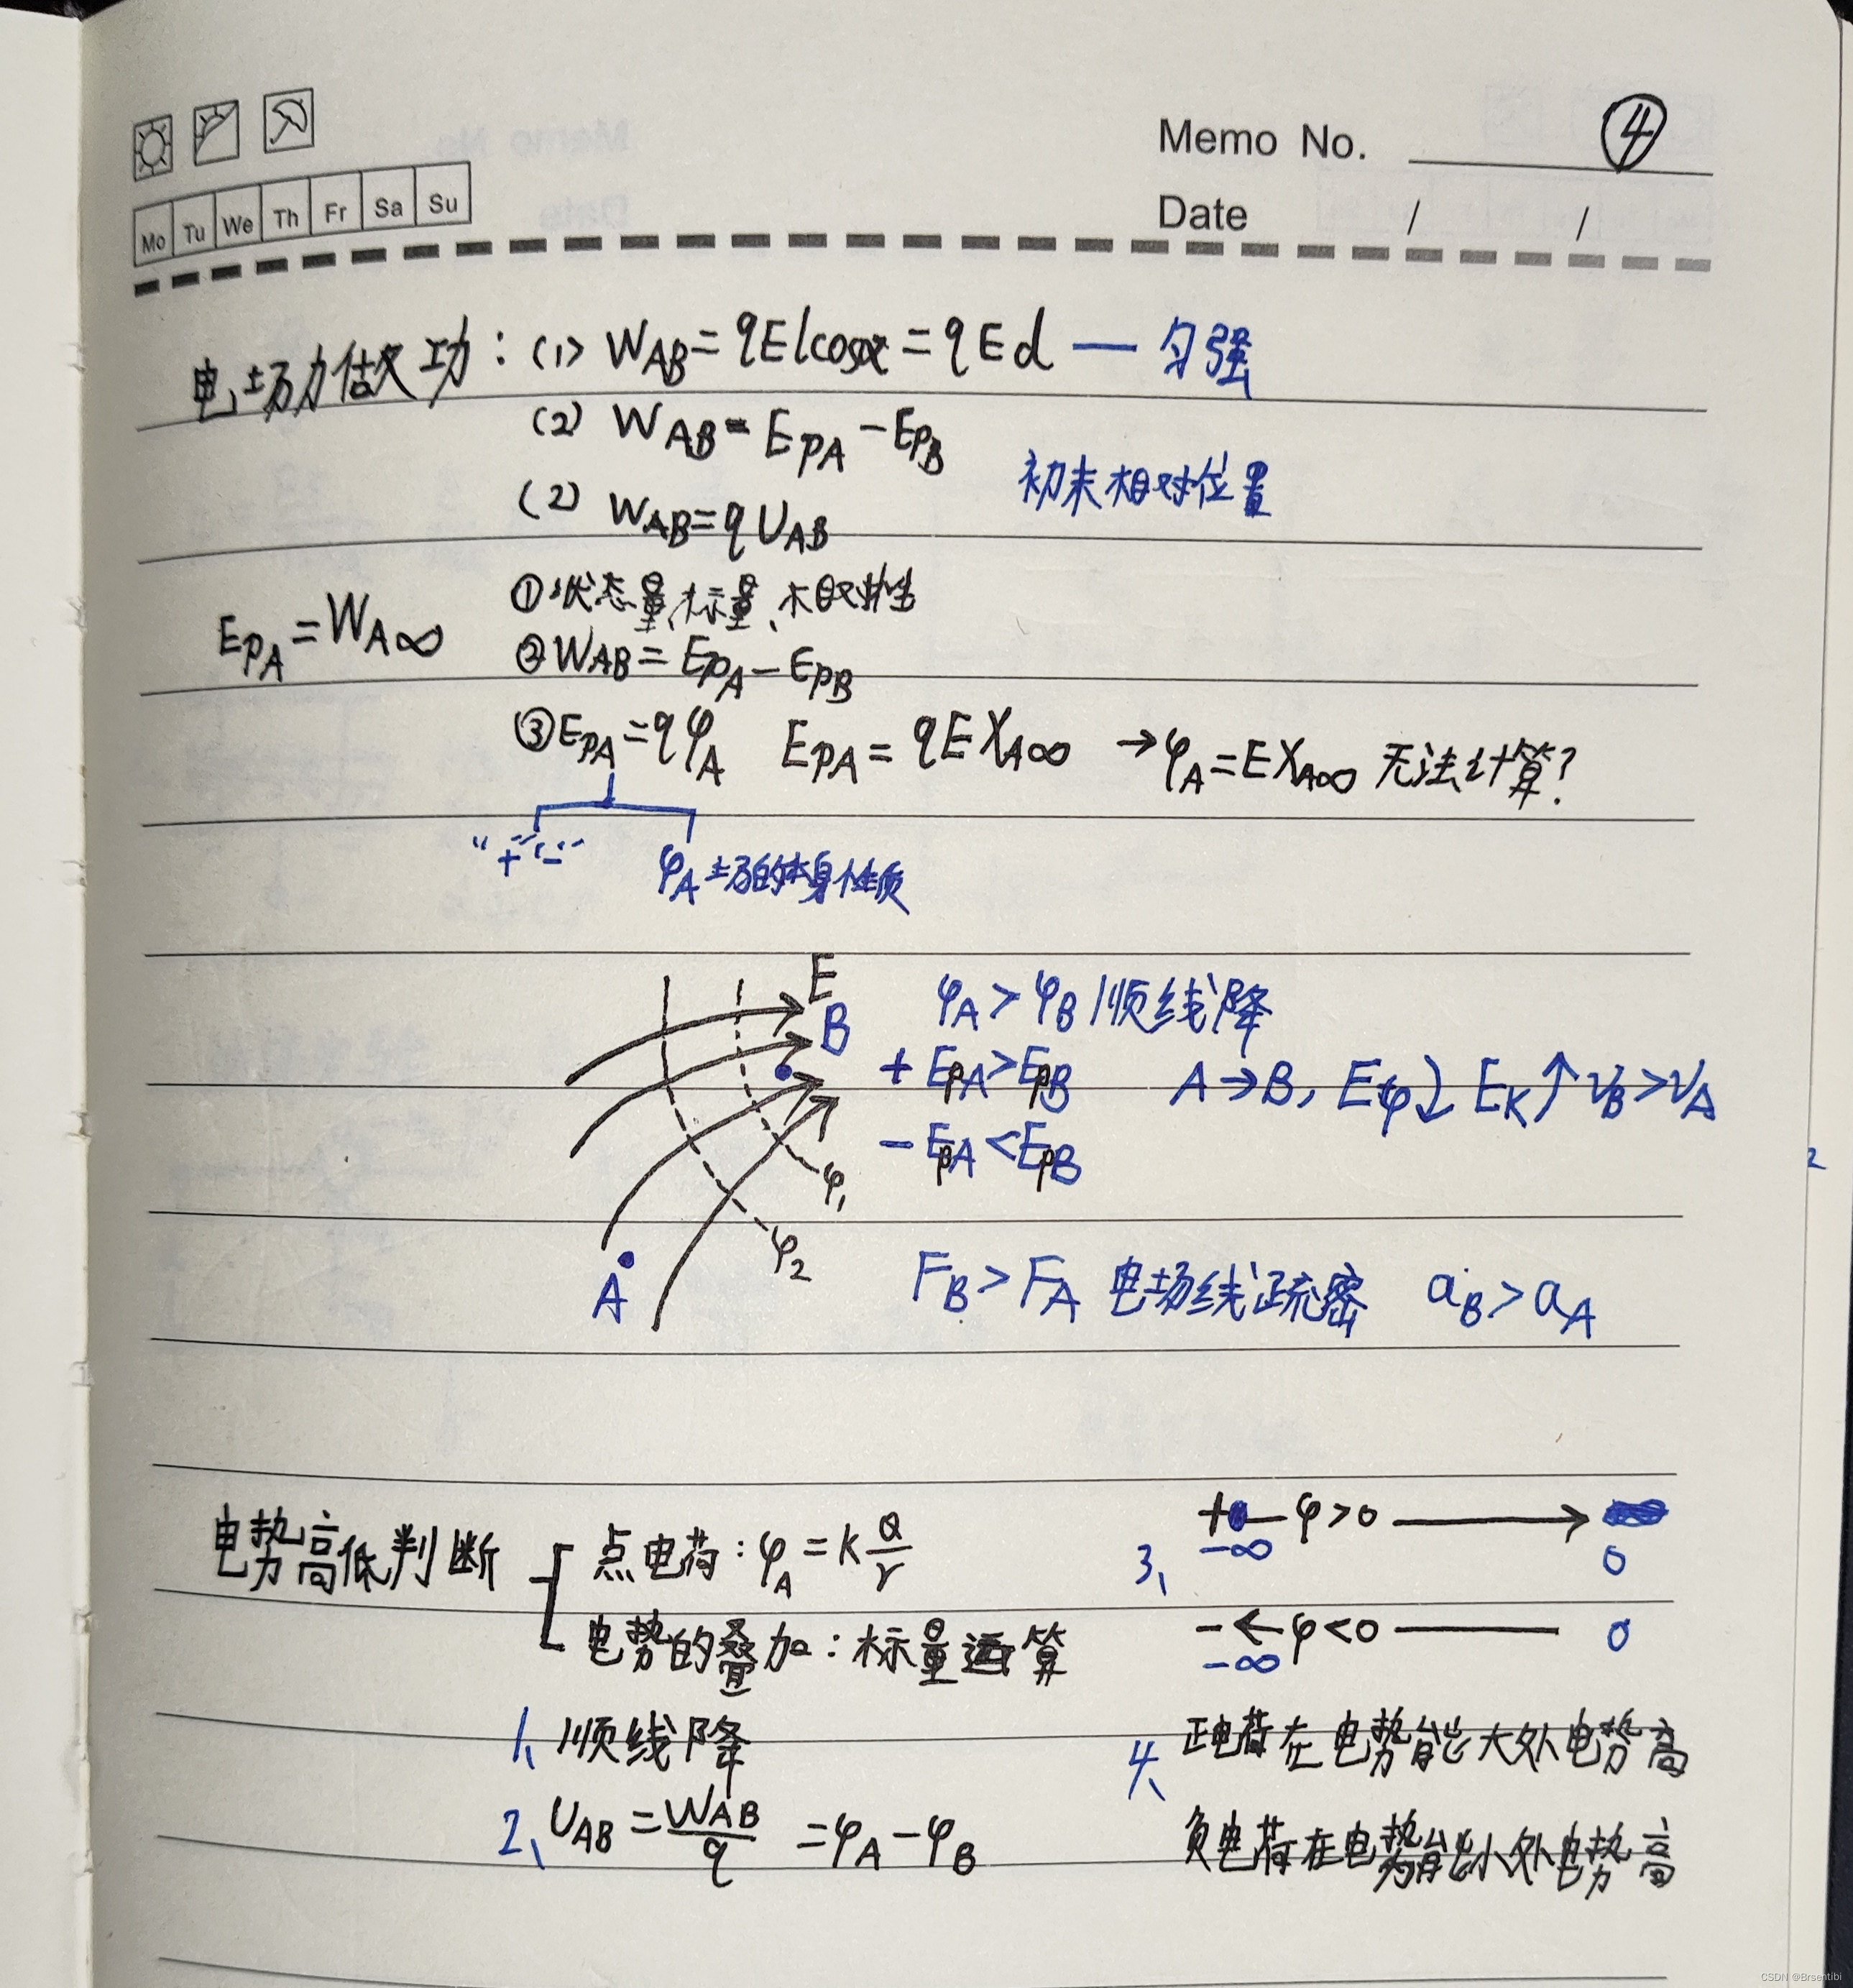 Memo No. ④
Mo Tu We Th Fr Sa Su
Date / /
电场力做功：(1) W_AB = qElcosα = qEd — 匀强
(2) W_AB = E_pA - E_pB
初末相对位置
(2) W_AB = qU_AB
E_pA = W_A∞
①状态量、标量、相对性
②W_AB = E_pA - E_pB
③E_pA = qφ_A E_pA = qEX_A∞ → φ_A = EX_A∞ 无法计算？
"+" "-" φ_A 场的本身性质
E
B
φ_A > φ_B 顺线降
+ E_pA > E_pB A→B, Eφ↓ E_K↑ v_B > v_A
- E_pA < E_pB
φ_1
φ_2
A
F_B > F_A 电场线疏密 a_B > a_A
电势高低判断
点电荷：φ_A = k Q/r
电势的叠加：标量运算
1、顺线降
2、U_AB = W_AB/q = φ_A - φ_B
3、
+ φ>0 → ∞
-∞ 0
- ← φ<0 — 0
-∞
4、正电荷在电势能大处电势高
负电荷在电势能小处电势高
CSDN @Brsentibi